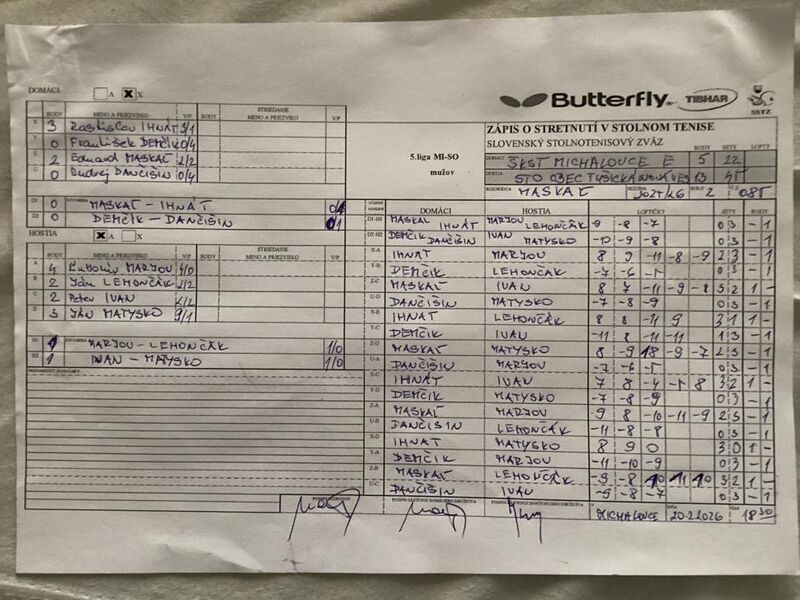 DOMÁCI A X X
Butterfly TIBHAR SSTZ
BODY MENO A PRIEZVISKO V/P BODY STRIEDANIE MENO A PRIEZVISKO V/P
X 3 Rastislav IHNÁT 3/1
Y 0 František DEMČIK 0/4
Z 2 Eduard MASKAĽ 2/2
U 0 Ondrej DANČIŠIN 0/4
5.liga MI-SO
mužov
ZÁPIS O STRETNUTÍ V STOLNOM TENISE
SLOVENSKÝ STOLNOTENISOVÝ ZVÄZ
BODY SETY LOPTY
DOMÁCI 3KST MICHALOVCE E 5 22
HOSTIA STO OBEC TUŠICKÁ NOVÁ VES 13 45
ROZHODCA MASKAĽ SEZÓNA 2025/26 KOLO 2 085
D1 0 MASKAĽ - IHNÁT 0/1
D2 0 DEMČIK - DANČIŠIN 0/1
HOSTIA A X
BODY MENO A PRIEZVISKO V/P BODY STRIEDANIE MENO A PRIEZVISKO V/P
A 4 Ľubomír MARJOV 4/0
B 2 Ján LEMONČÁK 2/2
C 2 Peter IVAN 2/2
D 3 Ján MATYSKO 3/1
H1 1 MARJOV - LEMONČÁK 1/0
H2 1 IVAN - MATYSKO 1/0
DOMÁCI HOSTIA LOPTIČKY SETY BODY
D1-H1 MASKAL IHNÁT MARJOV LEMONČÁK -9 -8 -7 0 3 - 1
D2-H2 DEMČIK DANČIŠIN IVAN MATYSKO -10 -9 -8 0 3 - 1
X-A IHNÁT MARJOV 8 9 -11 -8 -9 2 3 - 1
Y-B DEMČIK LEMONČÁK -7 -6 -5 0 3 - 1
Z-C MASKAĽ IVAN 8 7 -11 -9 -8 3 2 1 -
U-D DANČIŠIN MATYSKO -7 -8 -9 0 3 - 1
X-B IHNÁT LEMONČÁK 8 8 -11 9 3 1 1 -
Y-C DEMČIK IVAN -11 8 -11 -11
Z-D MASKAĽ MATYSKO 8 -9 18 -9 -7 2 3 - 1
U-A DANČIŠIN MARJOV -7 -6 -5 0 3 - 1
X-C IHNÁT IVAN 7 8 -4 -5 8 3 2 1 -
Y-D DEMČIK MATYSKO -7 -8 -9 0 3 - 1
Z-A MASKAĽ MARJOV 9 8 -10 -11 -9 2 3 - 1
U-B DANČIŠIN LEMONČÁK -11 -8 -8 0 3 - 1
X-D IHNÁT MATYSKO 8 9 0 3 0 1 -
Y-A DEMČIK MARJOV -11 -10 -9 0 3 - 1
Z-B MASKAĽ LEMONČÁK -9 -8 10 11 10 3 2 1 -
U-C DANČIŠIN IVAN -9 -8 -7 0 3 - 1
MICHALOVCE 20.2.2026 18 30